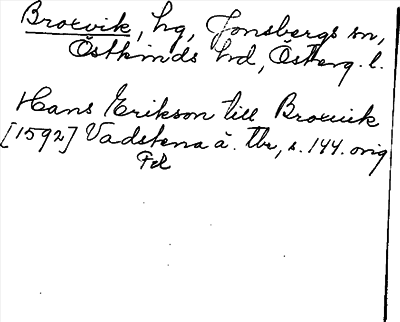 Broxvik, hg, Jonsbergs sn,
Östkinds hd, Österg. l.
Hans Erikson till Broxuik
[1592] Vadstena ä. tbr, s. 144. orig
Fd